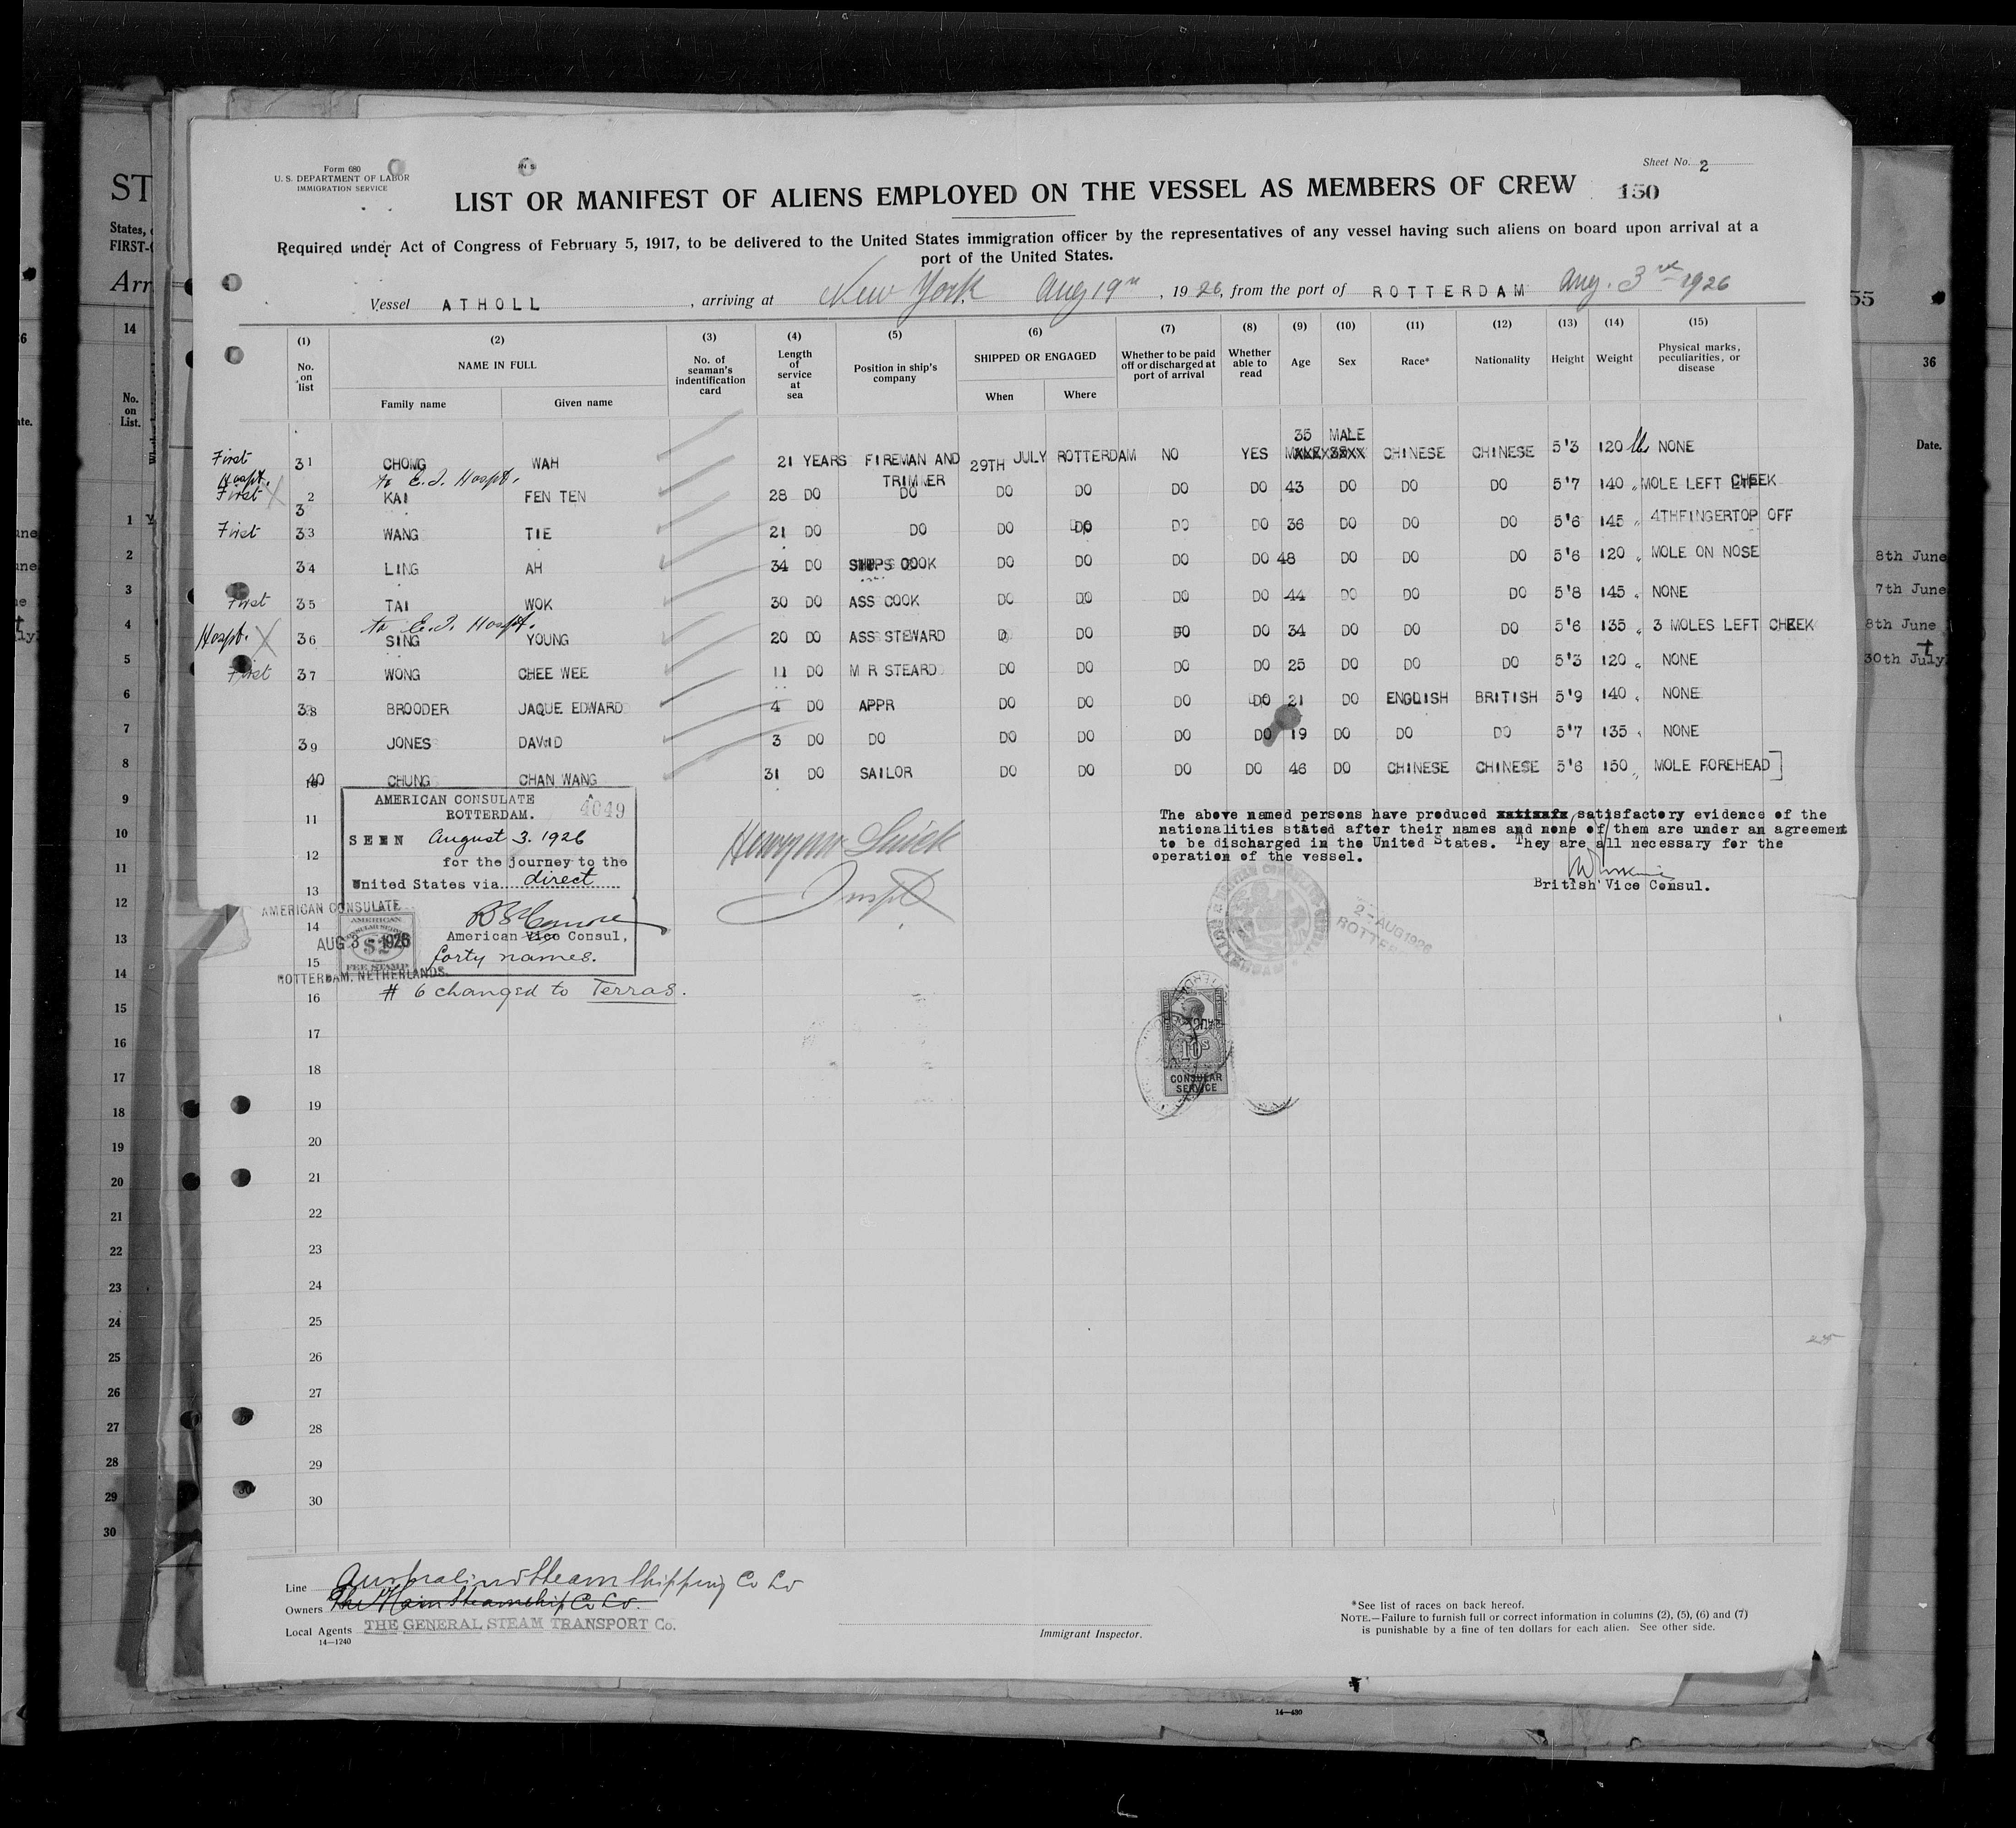 Form 680
U. S. DEPARTMENT OF LABOR
IMMIGRATION SERVICE
Sheet No. 2
LIST OR MANIFEST OF ALIENS EMPLOYED ON THE VESSEL AS MEMBERS OF CREW 150
Required under Act of Congress of February 5, 1917, to be delivered to the United States immigration officer by the representatives of any vessel having such aliens on board upon arrival at a
port of the United States.
Vessel ATHOLL , arriving at New York Aug 19th , 1926, from the port of ROTTERDAM Aug. 3rd 1926
(1) (2) (3) (4) (5) (6) (7) (8) (9) (10) (11) (12) (13) (14) (15)
No. on list NAME IN FULL Family name Given name No. of seaman's indentification card Length of service at sea Position in ship's company SHIPPED OR ENGAGED When Where Whether to be paid off or discharged at port of arrival Whether able to read Age Sex Race* Nationality Height Weight Physical marks, peculiarities, or disease
35 MALE
First 31 CHONG WAH 21 YEARS FIREMAN AND TRIMMER 29TH JULY ROTTERDAM NO YES CHINESE CHINESE 5'3 120 lbs NONE
Hospt. to E.I. Hospt.
First X 32 KAI FEN TEN 28 DO DO DO DO DO DO 43 DO DO DO 5'7 140 " MOLE LEFT CHEEK
First 33 WANG TIE 21 DO DO DO DO DO DO 36 DO DO DO 5'6 145 " 4THFINGERTOP OFF
34 LING AH 34 DO SHIPS COOK DO DO DO DO 48 DO DO DO 5'6 120 " MOLE ON NOSE
First 35 TAI WOK 30 DO ASS COOK DO DO DO DO 44 DO DO DO 5'8 145 " NONE
to E.I. Hospt.
Hospt. X 36 SING YOUNG 20 DO ASS STEWARD DO DO DO DO 34 DO DO DO 5'6 135 " 3 MOLES LEFT CHEEK
First 37 WONG CHEE WEE 11 DO M R STEARD DO DO DO DO 25 DO DO DO 5'3 120 " NONE
38 BROODER JAQUE EDWARD 4 DO APPR DO DO DO DO 21 DO ENGLISH BRITISH 5'9 140 " NONE
39 JONES DAVID 3 DO DO DO DO DO DO 19 DO DO DO 5'7 135 " NONE
40 CHUNG CHAN WANG 31 DO SAILOR DO DO DO DO 46 DO CHINESE CHINESE 5'6 150 " MOLE FOREHEAD
AMERICAN CONSULATE
ROTTERDAM.
4049
SEEN August 3. 1926
for the journey to the
United States via direct
American Vice Consul,
forty names.
AMERICAN CONSULATE
AUG 3 1926
ROTTERDAM, NETHERLANDS.
AMERICAN
CONSULAR SERVICE
$2
FEE STAMP
# 6 changed to Terras.
The above named persons have produced satisfactory evidence of the
nationalities stated after their names and none of them are under an agreement
to be discharged in the United States. They are all necessary for the
operation of the vessel.
British Vice Consul.
2-AUG 1926
10s
CONSULAR
SERVICE
11
12
13
14
15
16
17
18
19
20
21
22
23
24
25
26
27
28
29
30
Line Australind Steam Shipping Co Ld
Owners The Main Steamship Co Ld.
Local Agents THE GENERAL STEAM TRANSPORT Co.
14—1240
Immigrant Inspector.
*See list of races on back hereof.
NOTE.—Failure to furnish full or correct information in columns (2), (5), (6) and (7)
is punishable by a fine of ten dollars for each alien. See other side.
14—480
ST
States,
FIRST-
Arr
14
No.
on
List.
1
2
3
4
5
6
7
8
9
10
11
12
13
14
15
16
17
18
19
20
21
22
23
24
25
26
27
28
29
30
55
36
Date.
8th June
7th June
8th June
30th July